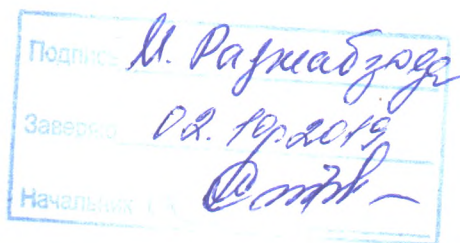 Подпись М. Раджабзода
Заверяю 02.10.2019
Начальник